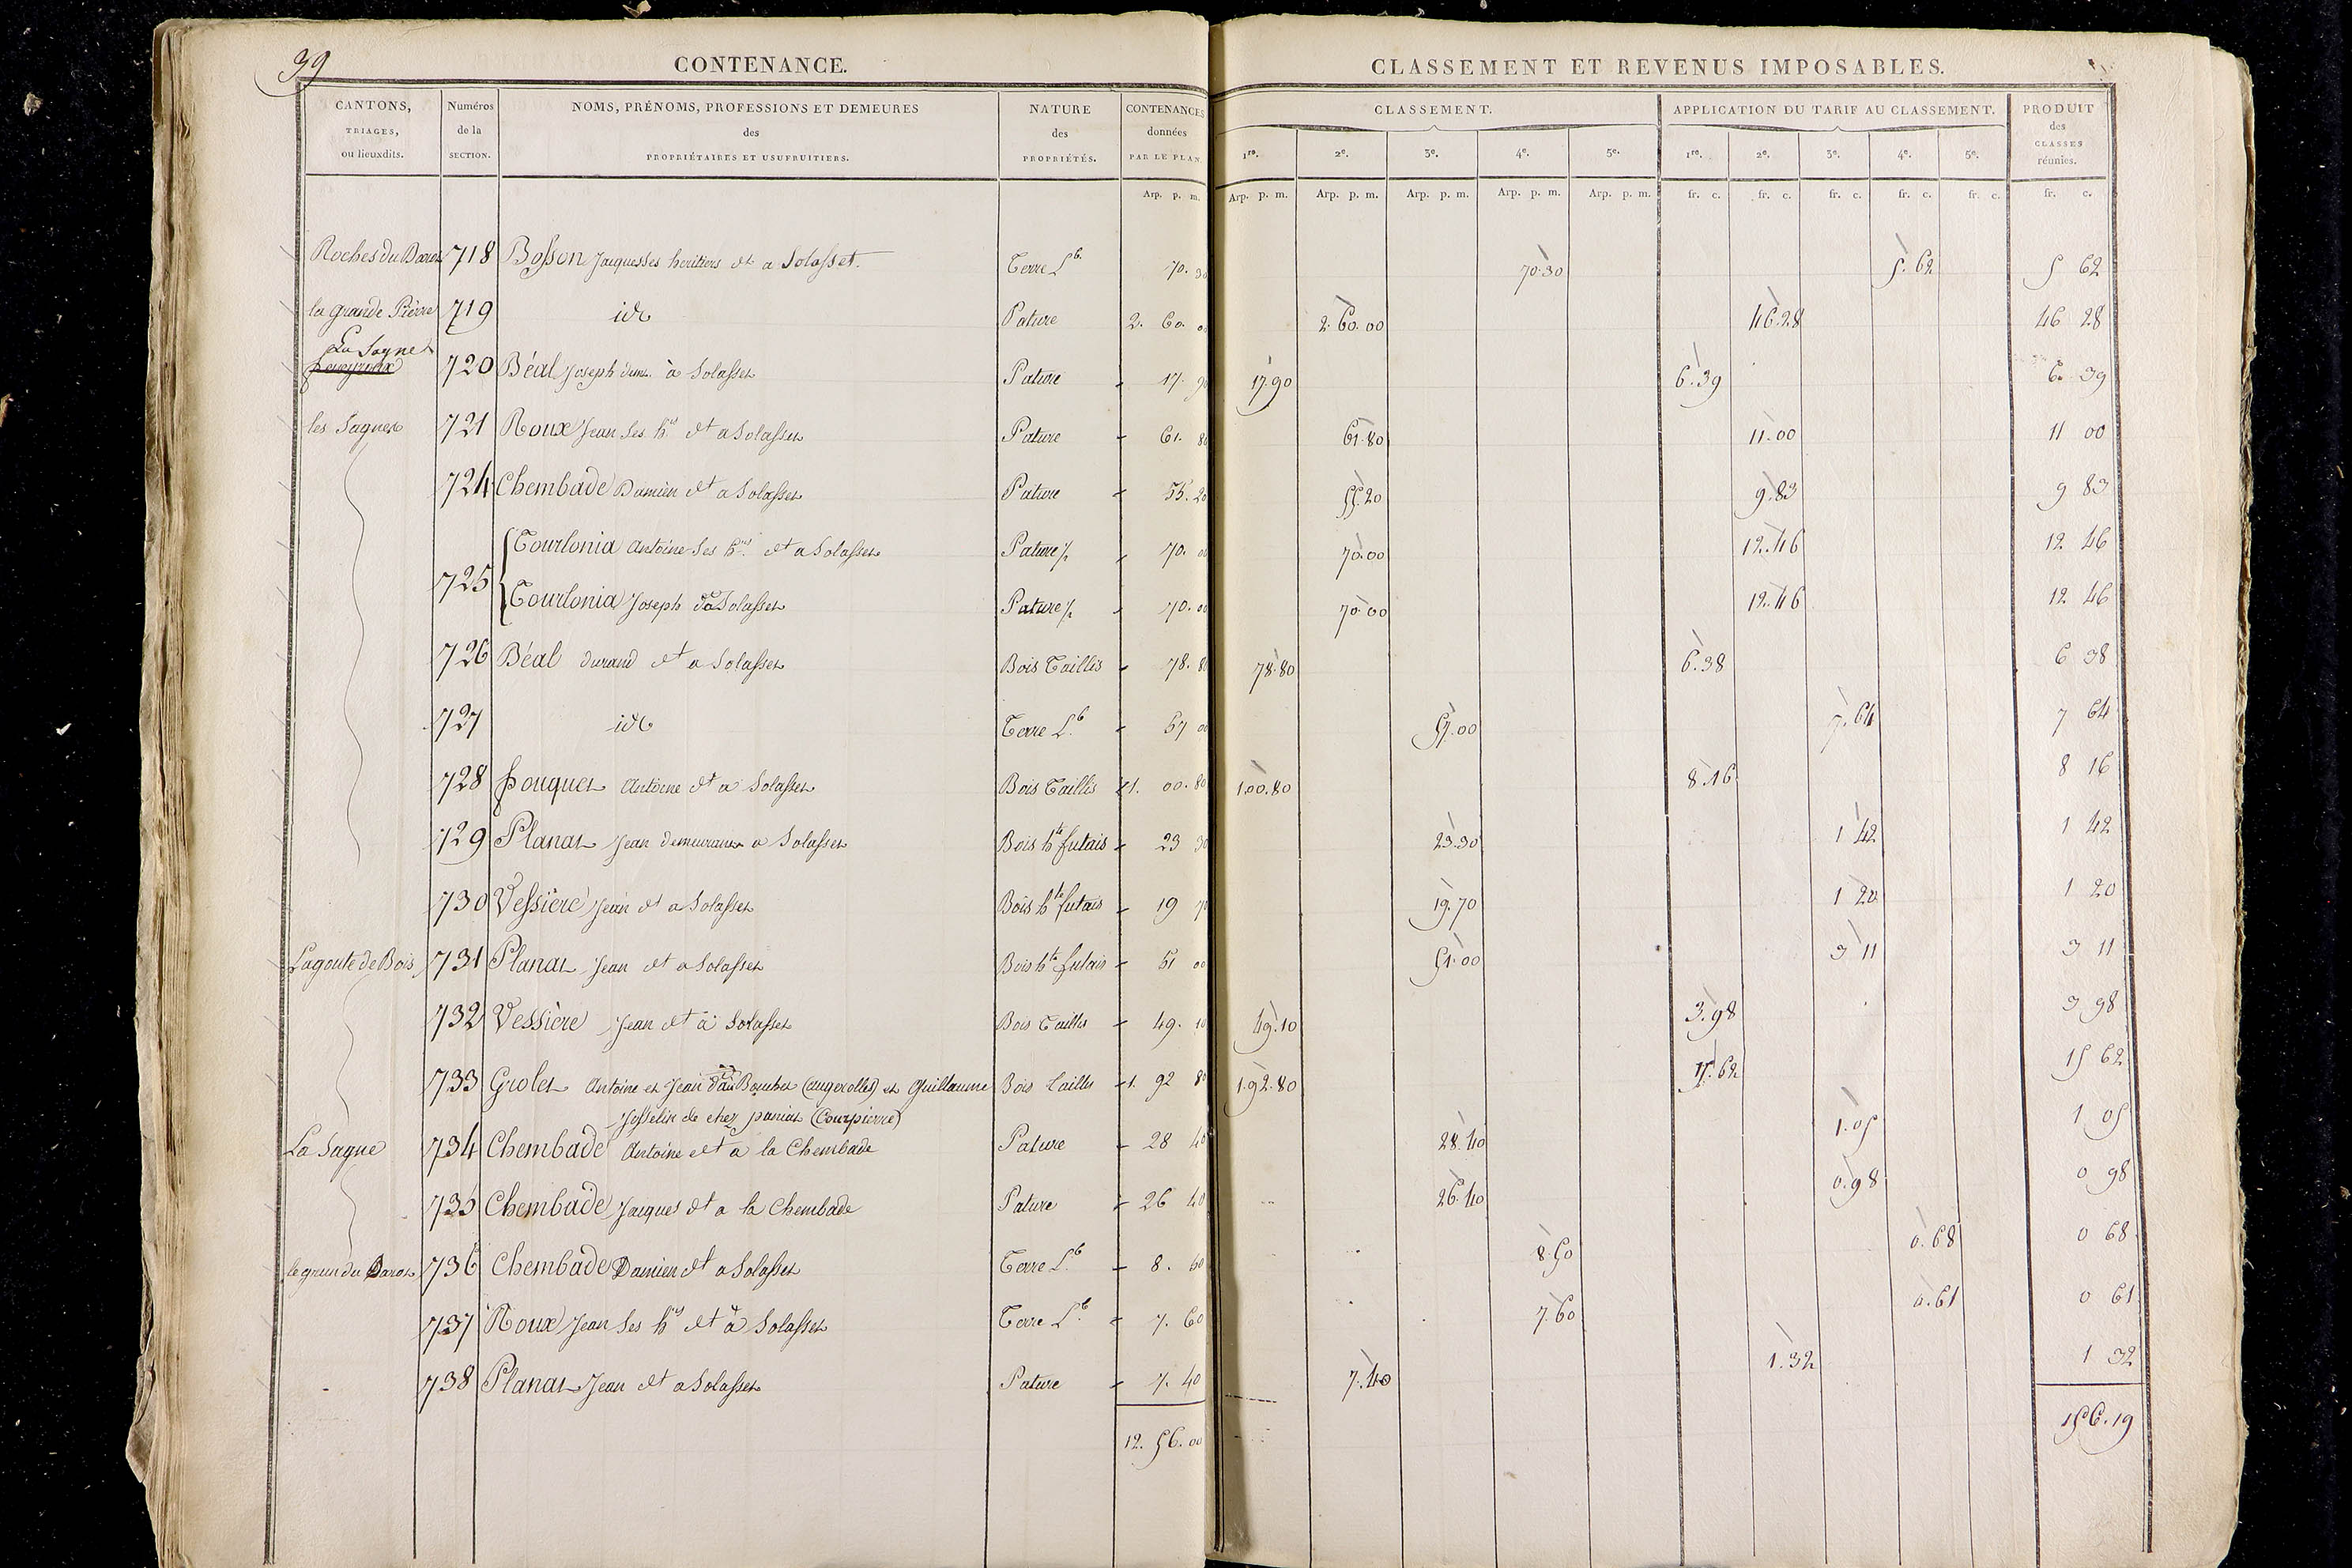 39
CONTENANCE.
CLASSEMENT ET REVENUS IMPOSABLES.
CANTONS, TRIAGES, ou lieuxdits. Numéros de la SECTION. NOMS, PRÉNOMS, PROFESSIONS ET DEMEURES des PROPRIÉTAIRES ET USUFRUITIERS. NATURE des PROPRIÉTÉS. CONTENANCES données PAR LE PLAN. CLASSEMENT. APPLICATION DU TARIF AU CLASSEMENT. PRODUIT des CLASSES réunies.
1re. 2e. 3e. 4e. 5e. 1re. 2e. 3e. 4e. 5e.
Arp. p. m. Arp. p. m. Arp. p. m. Arp. p. m. Arp. p. m. Arp. p. m. fr. c. fr. c. fr. c. fr. c. fr. c. fr. c.
Roches du 718 Bosson Jacques ses heritiers dt a Solasset Terre Lb. 70. 30 70.30 5.62 5 62
la grande Pierre 719 id Pature 2. 60. 00 2.60.00 46.28 46 28
La Sagne
720 Béal Joseph à Solasset Pature - 17. 90 17.90 6.39 6. 39
les Sagnes 721 Roux Jean ses hrs dt a Solasset Pature - 61. 80 61.80 11.00 11 00
724 Chembade Damien dt a Solasset Pature - 55. 20 55.20 9.83 9 83
725 Tourlonia Antoine ses hrs dt a Solasset Pature - 70. 00 70.00 12.46 12 46
Tourlonia Joseph Solasset Pature - 70. 00 70.00 12.46 12 46
726 Béal durand dt a Solasset Bois Taillis - 78. 80 78.80 6.38 6 38
727 id Terre Lb. - 57 00 57.00 7.64 7 64
728 Fouquet Antoine dt a Solasset Bois Taillis 1. 00. 80 1.00.80 8.16 8 16
729 Planat Jean demeurant a Solasset Bois hte futais - 23 30 23.30 1 42 1 42
730 Vessiere Jean dt a Solasset Bois hte futais - 19 70 19.70 1 20 1 20
Lagoute de Bois 731 Planat Jean dt a Solasset Bois hte futais - 51 00 51.00 3 11 3 11
732 Vessière Jean dt à Solasset Bois Taillis - 49. 10 49.10 3.98 3 98
733 Grolet Antoine et Jean (augerolles) et Guillaume Bois Taillis 1. 92 80 1.92.80 15.62 15 62
Josselin de chez (Courpierre)
La Sagne 734 Chembade Antoine dt a la Chembade Pature - 28 40 28.40 1.05 1 05
735 Chembade Jacques dt a la Chembade Pature - 26 40 26.40 0.98 0 98
736 Chembade Damien dt a Solasset Terre Lb. - 8. 50 8.50 0.68 0 68
737 Roux Jean ses hrs dt à Solasset Terre Lb. - 7. 60 7.60 0.61 0 61
738 Planat Jean dt a Solasset Pature - 7. 40 7.40 1.32 1 32
12. 56. 00 156.19